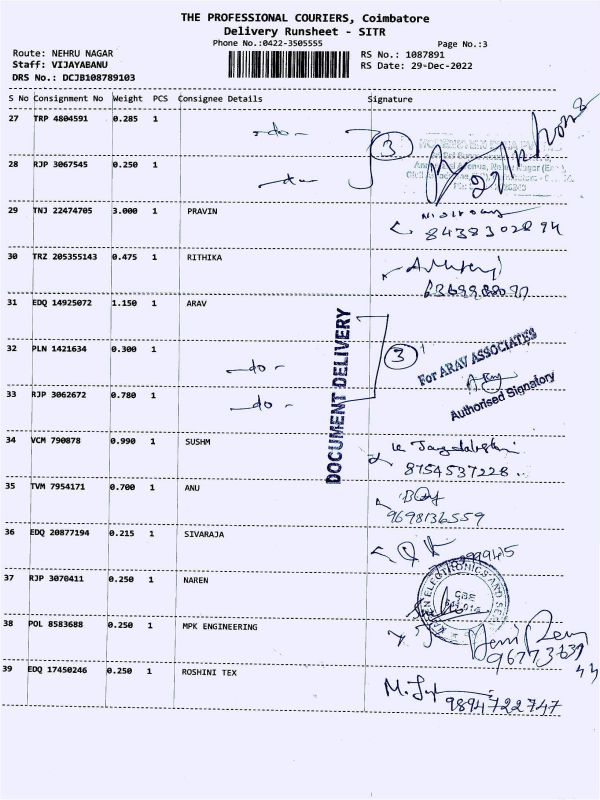 THE PROFESSIONAL COURIERS, Coimbatore
Delivery Runsheet - SITR
Phone No.:0422-3505555
Page No.:3
Route: NEHRU NAGAR
RS No.: 1087891
Staff: VIJAYABANU
RS Date: 29-Dec-2022
DRS No.: DCJB108789103
S No Consignment No Weight PCS Consignee Details Signature
27 TRP 4804591 0.285 1 -do-
3
28 RJP 3067545 0.250 1
29 TNJ 22474705 3.000 1 PRAVIN
8438302894
30 TRZ 205355143 0.475 1 RITHIKA
31 EDQ 14925072 1.150 1 ARAV
DOCUMENT DELIVERY
32 PLN 1421634 0.300 1 -do-
3
For ARAV ASSOCIATES
33 RJP 3062672 0.780 1 -do-
Authorised Signatory
34 VCM 790878 0.990 1 SUSHM
8754537228
35 TVM 7954171 0.700 1 ANU
9698136559
36 EDQ 20877194 0.215 1 SIVARAJA
37 RJP 3070411 0.250 1 NAREN
CBE
38 POL 8583688 0.250 1 MPK ENGINEERING
39 EDQ 17450246 0.250 1 ROSHINI TEX
9894722747